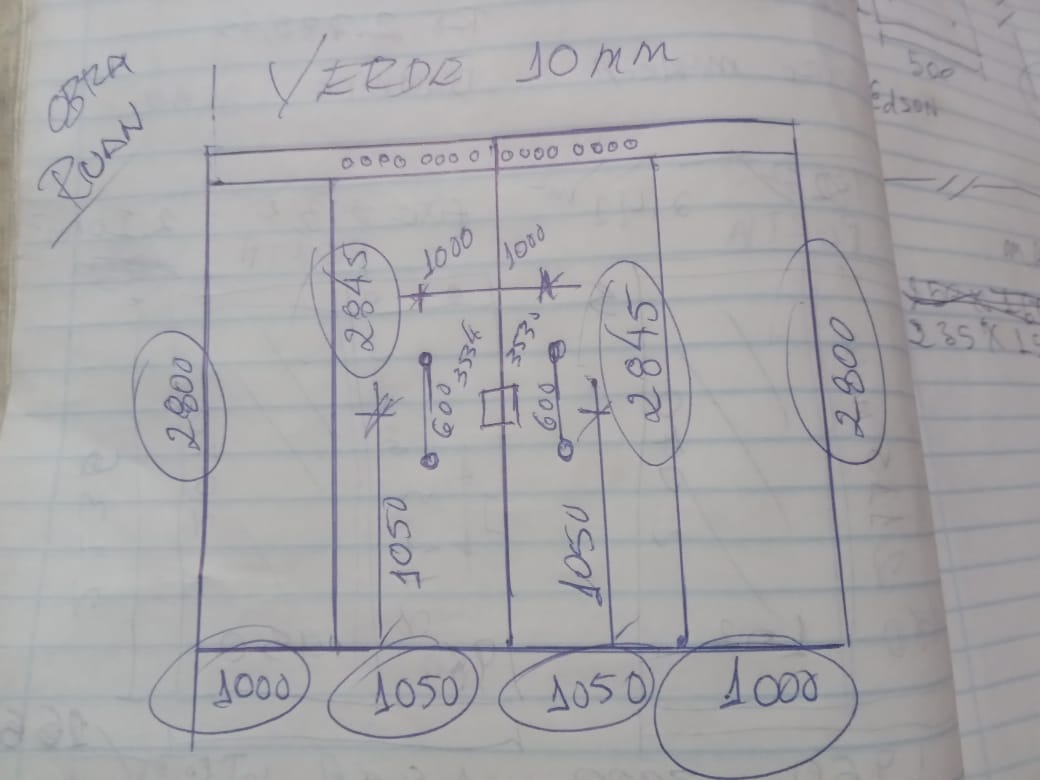 OBRA
RUAN
VERDE 10mm
1000 1000
2845
3534 3530
2800
600 600
2845
2800
1050
1050
1000 1050 1050 1000
500
Edson